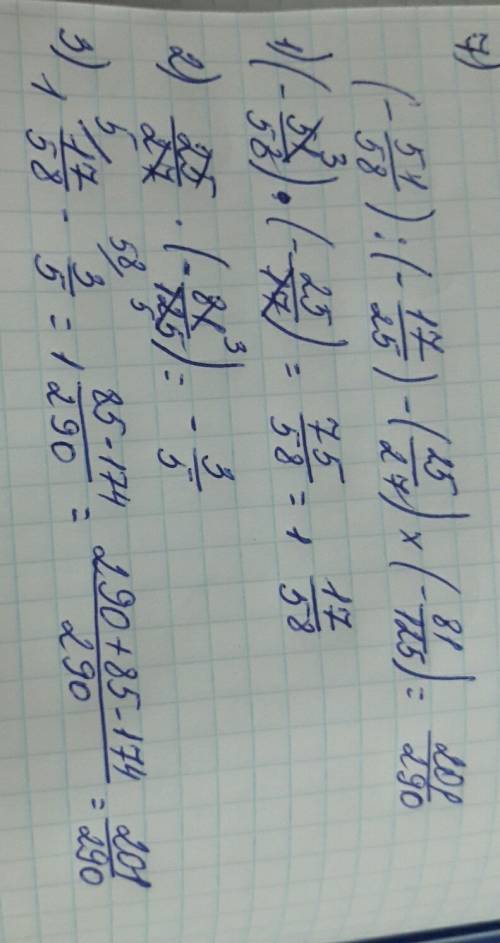 7)
(-51/58) : (-17/25) - (25/27) × (-81/125) = 201/290
1) (-51/58 3) · (-25/17) = 75/58 = 1 17/58
2) 25/27 · (-81/125 3 5) = -3/5
3) 1 17/58 5/ - 3/5 58/ = 1 85-174/290 = 290+85-174/290 = 201/290